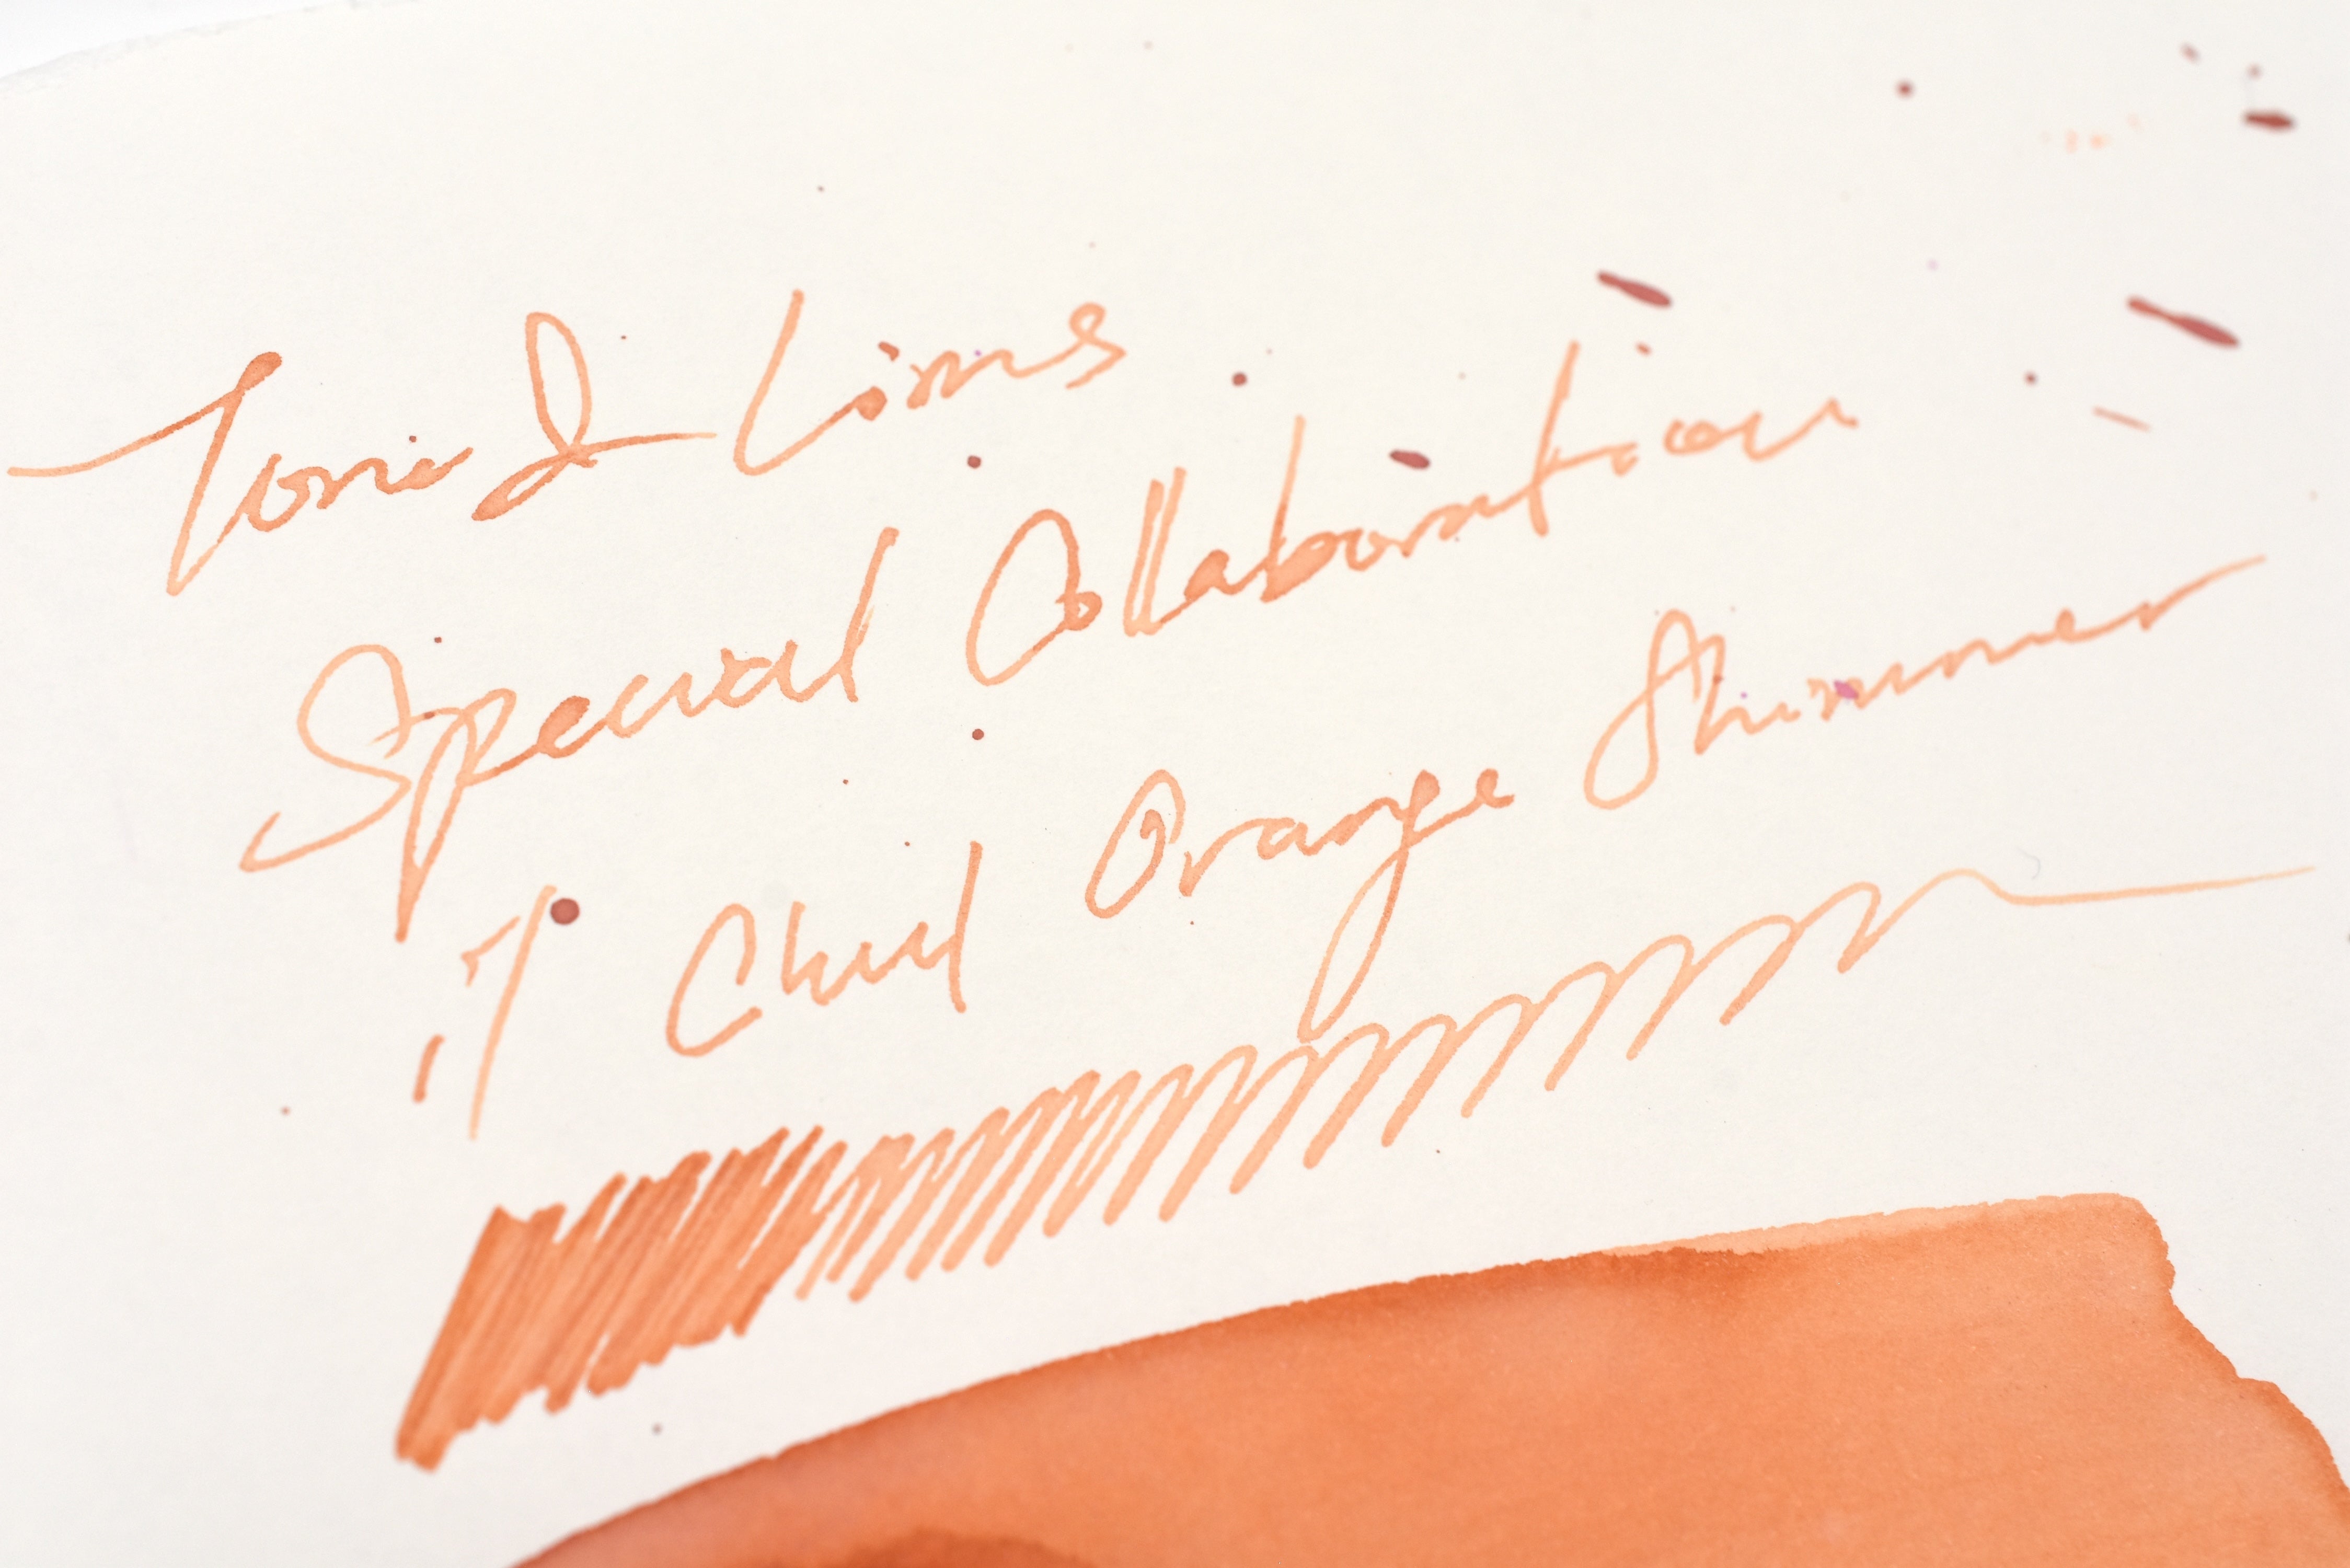 Tono & Lims
Special Collaboration
il Chul Orange Shimmer